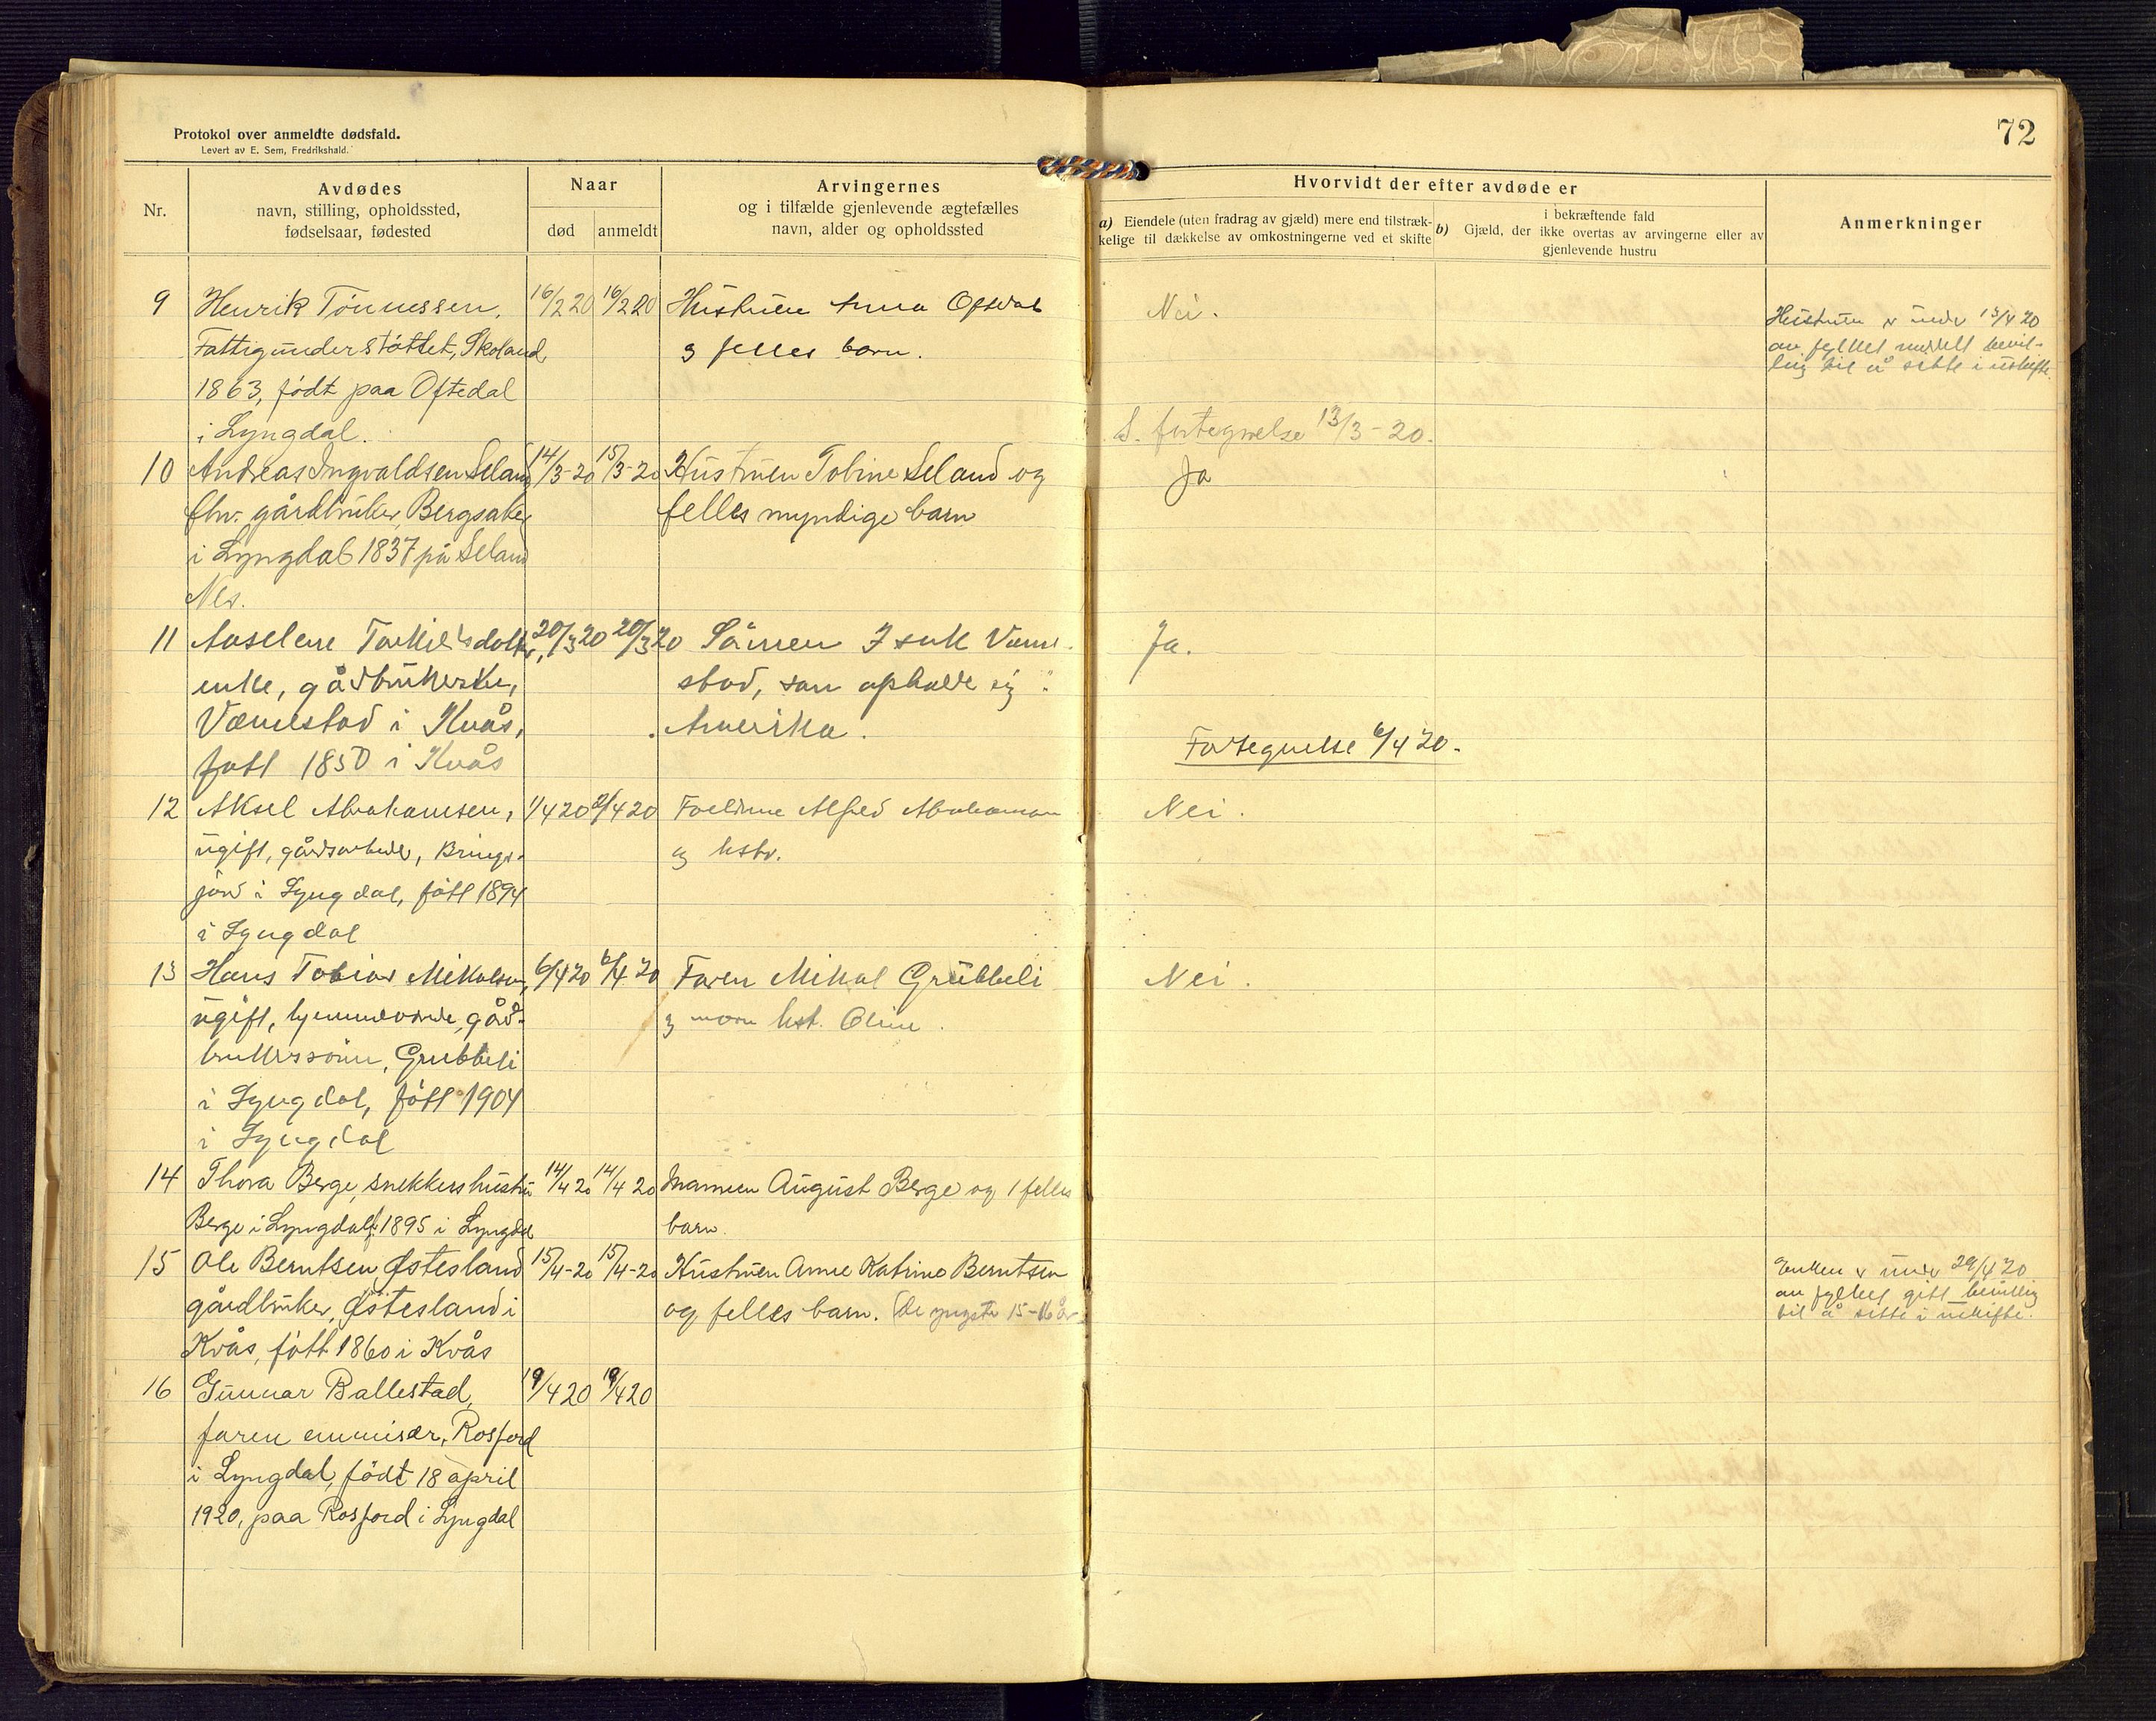 72
Protokol over anmeldte dødsfald.
Levert av E. Sem, Fredrikshald.
Nr.
Avdødes
navn, stilling, opholdssted,
fødselsaar, fødested
Naar
død
anmeldt
Arvingernes
og i tilfælde gjenlevende ægtefælles
navn, alder og opholdssted
Hvorvidt der efter avdøde er
a) Eiendele (uten fradrag av gjæld) mere end tilstræk-
kelige til dækkelse av omkostningerne ved et skifte
b) Gjæld, der ikke overtas av arvingerne eller av
i bekræftende fald
gjenlevende hustru
Anmerkninger
9 Henrik Tönnessen, 16/2 20 16/2 20 Hustruen Anna Opsal Nei.
Fattigunderstöttet, Skoland, g felles barn.
1863, födt paa Oftedal
i Lyngdal.
Hustruen er under 15/4 20
av fylket meddelt bevil-
ling til å sitte i uskifte.
S. fortegnelse 13/3-20.
10 Andreas Ingvaldsen Seland 14/3-20 15/3-20 Hustruen Tobine Seland og Ja
fhv. gårdbruker, Bergsaker felles myndige barn
i Lyngdal 1837 på Seland
Nes.
11 Aaselene Torkildsdatter, 20/3 20 20/3 20 Sönnen Isak Væme- Ja.
enke, gårdbrukerske, stad, som opholder sig i
Væmestad i Kvås, Amerika.
født 1850 i Kvås
Fortegnelse 6/4 20.
12 Aksel Abrahamsen, 1/4 20 2/4 20 Foreldrene Alfred Abrahamsen Nei.
ugift, gårdsarbeider, Brings- og hstr.
jord i Lyngdal, født 1894
i Lyngdal
13 Hans Tobias Mikalsen, 6/4 20 6/4 20 Faren Mikal Grübbeli Nei.
ugift, hjemmeværende, gård- g moren hst. Oline.
brukerssönn, Grubbeli
i Lyngdal, fött 1904
i Lyngdal
14 Thora Berge, snekkers hustru 14/4 20 14/4 20 Mannen August Berge og 1 felles
Berge i Lyngdal, f. 1895 i Lyngdal barn.
15 Ole Berntsen Østesland 15/4-20 15/4-20 Hustruen Anne Katrine Berntsen
gårdbruker, Østesland i og felles barn. (de yngste 15-16 år
Kvås, fött 1860 i Kvås
Enken er under 29/4 20
av fylket gitt bevilling
til å sitte i uskifte.
16 Gunnar Ballestad, 19/4 20 19/4 20
faren emmisær, Rosfjord
i Lyngdal, födt 18 april
1920, paa Rosfjord i Lyngdal